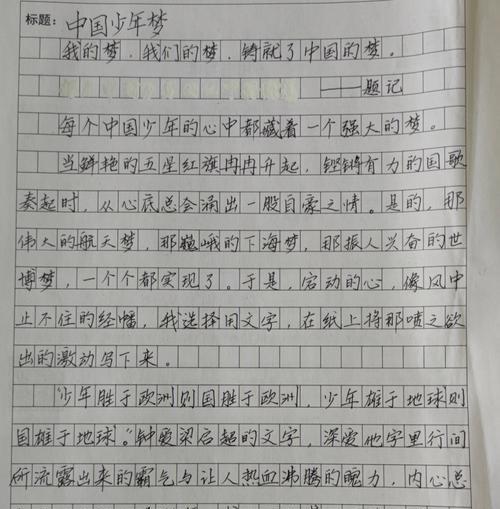 标题：中国少年梦
我的梦，我们的梦，铸就了中国的梦。
——题记
每个中国少年的心中都藏着一个强大的梦。
当鲜艳的五星红旗冉冉升起，铿锵有力的国歌
奏起时，从心底总会涌出一股自豪之情。是的，那
伟大的航天梦，那巍峨的下海梦，那振人兴奋的世
博梦，一个个都实现了。于是，启动的心，像风中
止不住的经幡，我选择用文字，在纸上将那喷之欲
出的激动写下来。
“少年胜于欧洲则国胜于欧洲，少年雄于地球则
国雄于地球。”钟爱梁启超的文字，深爱他字里行间
所流露出来的霸气与让人热血沸腾的魄力，内心总